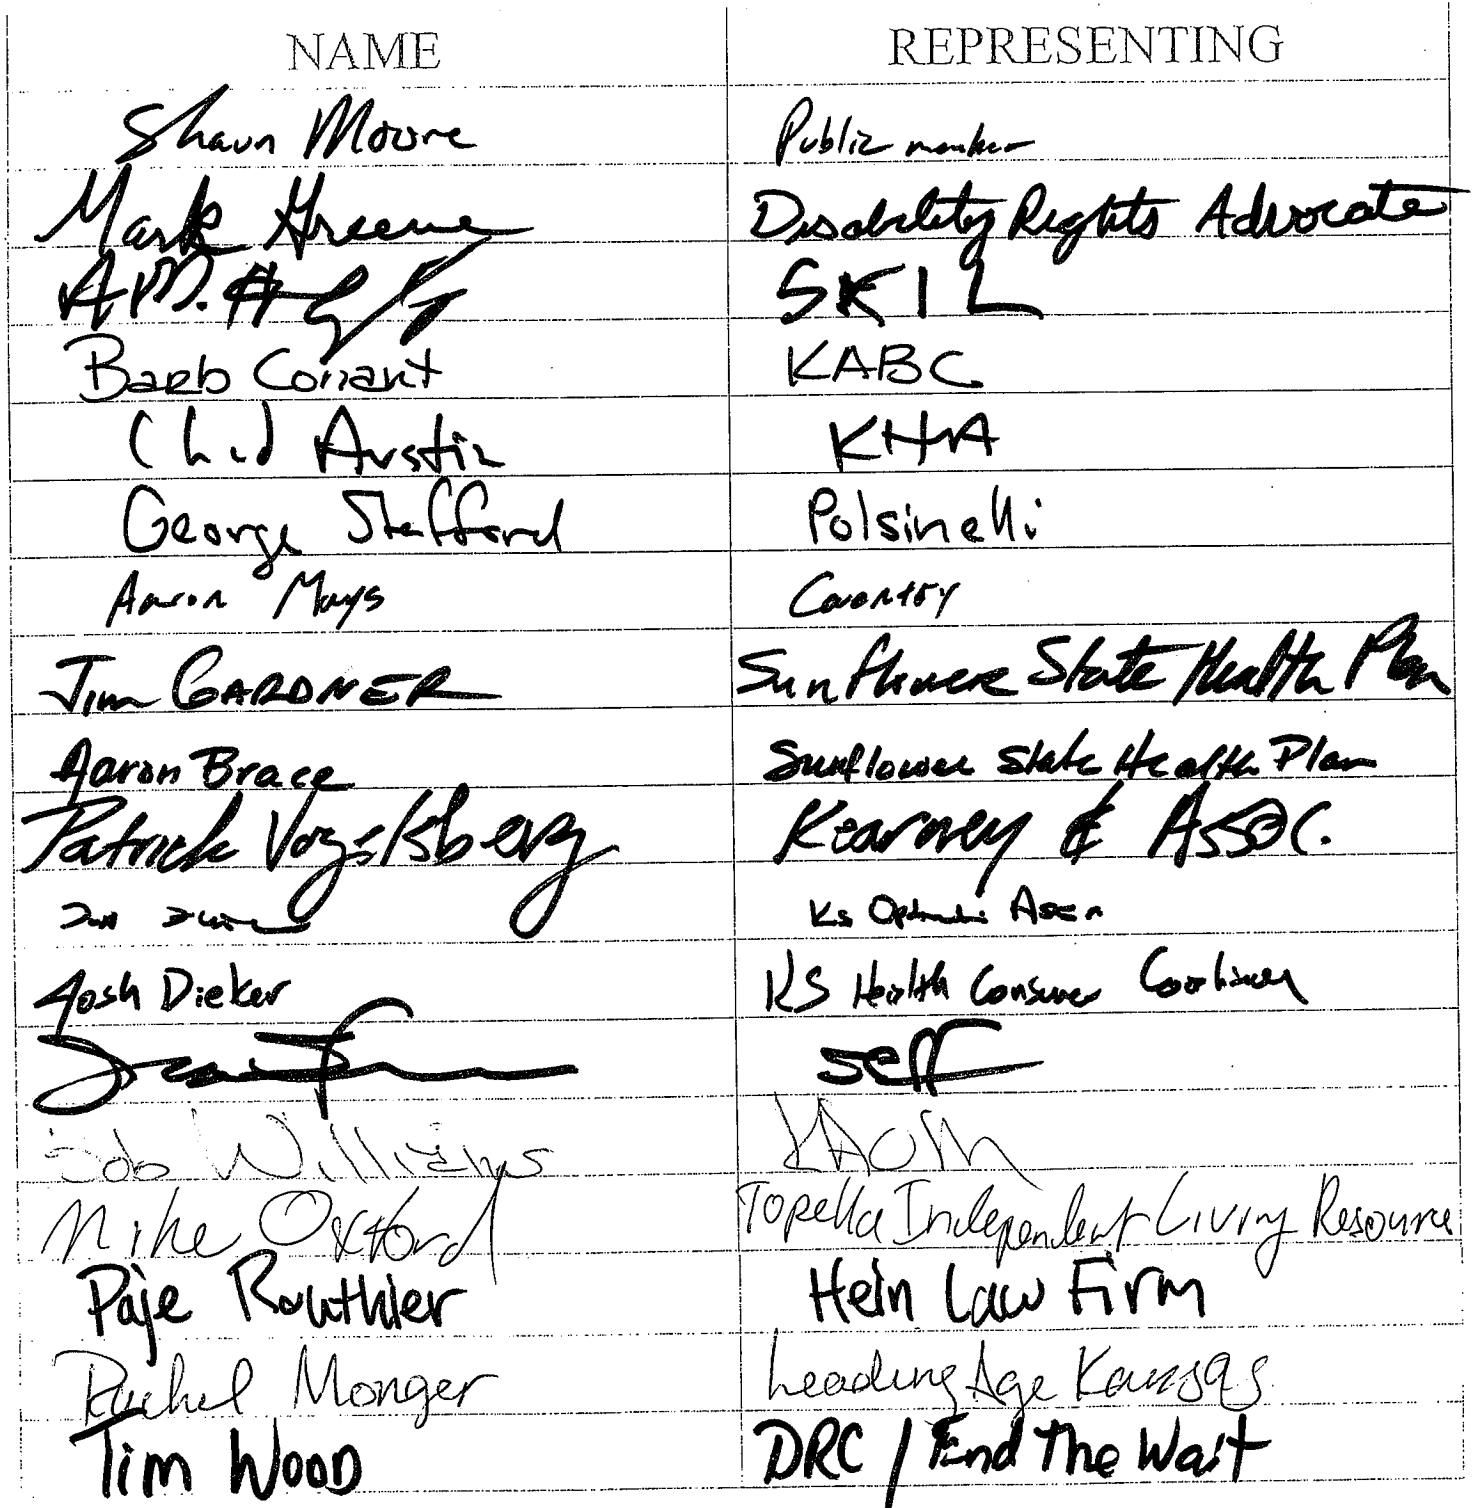 NAME REPRESENTING
Shaun Moore Public member
Mark Greene Disability Rights Advocate
A.M. SKIL
Barb Conant KABC
Chad Austin KHA
George Stafford Polsinelli
Aaron Mays Coventry
Jim GARDNER Sunflower State Health Plan
Aaron Brace Sunflower State Health Plan
Patrick Vogelsberg Kearney & Assoc.
Ks Assn
Josh Dieker KS Health Consumer Coalition
self
Bob Williams KAOM
Mike Oxford Topeka Independent Living Resource
Paije Routhier Hein Law Firm
Rachel Monger Leading Age Kansas
Tim Wood DRC / End The Wait